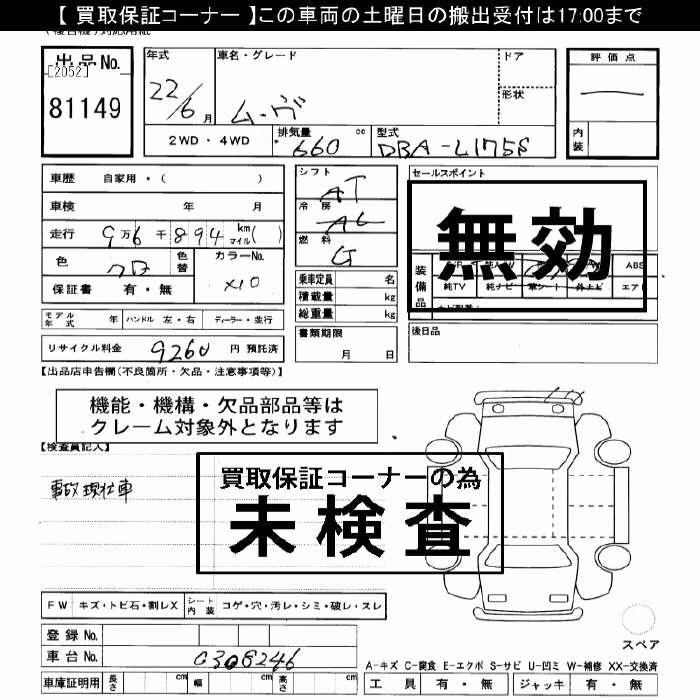 【 買取保証コーナー 】この車両の土曜日の搬出受付は17:00まで
出品No.
[2052]
81149
年式
22/6月
車名・グレード
ムーヴ
ドア
形状
評価点
内装
2WD ・ 4WD
排気量
660 cc
型式
DBA-L175S
車歴 自家用・( )
車検 年 月
走行 9万6千894km マイル( )
色 クロ
色替
カラーNo.
X10
保証書 有・無
モデル年式 年 ハンドル 左・右 ディーラー・並行
リサイクル料金 9260 円 預託済
シフト
AT
冷房
AC
燃料
G
乗車定員 名
積載量 kg
総重量 kg
書類期限
月 日
セールスポイント
無効
装備品
ABS
純TV 純ナビ 革シート 外ナビ エアB
後日品
【出品店申告欄(不良箇所・欠品・注意事項等)】
機能・機構・欠品部品等は
クレーム対象外となります
【検査員記入】
事故現状車
買取保証コーナーの為
未検査
FW キズ・トビ石・割レX シート内装 コゲ・穴・汚レ・シミ・破レ・スレ
登録No.
車台No. 0308246
車庫証明用 長さ cm 幅 cm 高さ cm
スペア
A-キズ C-腐食 E-エクボ S-サビ U-凹ミ W-補修 XX-交換済
工具 有・無 ジャッキ 有・無